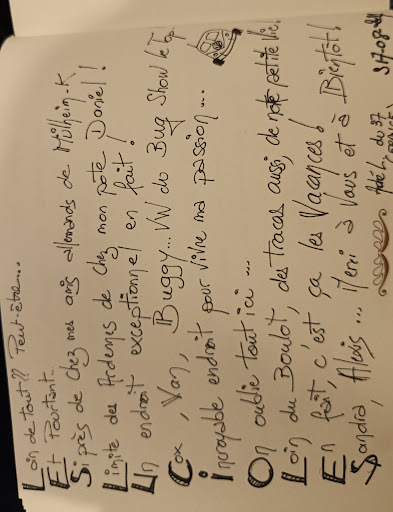 Loin de tout?? Peut-être...
Et Pourtant...
Si près de chez mes amis allemands de Mülheim-K
Limite des Ardennes de chez mon pote Daniel!
Un endroit exceptionnel en fait!
Cox, Van, Buggy... VW do Bug Show le
Incroyable endroit pour vivre ma passion...
On oublie tout ici...
Loin du Boulot, des tracas aussi, de notre petite vie,
En fait, c'est ça les Vacances!
Sandra, Alexis... Merci à Vous et à Bientôt!
du 37